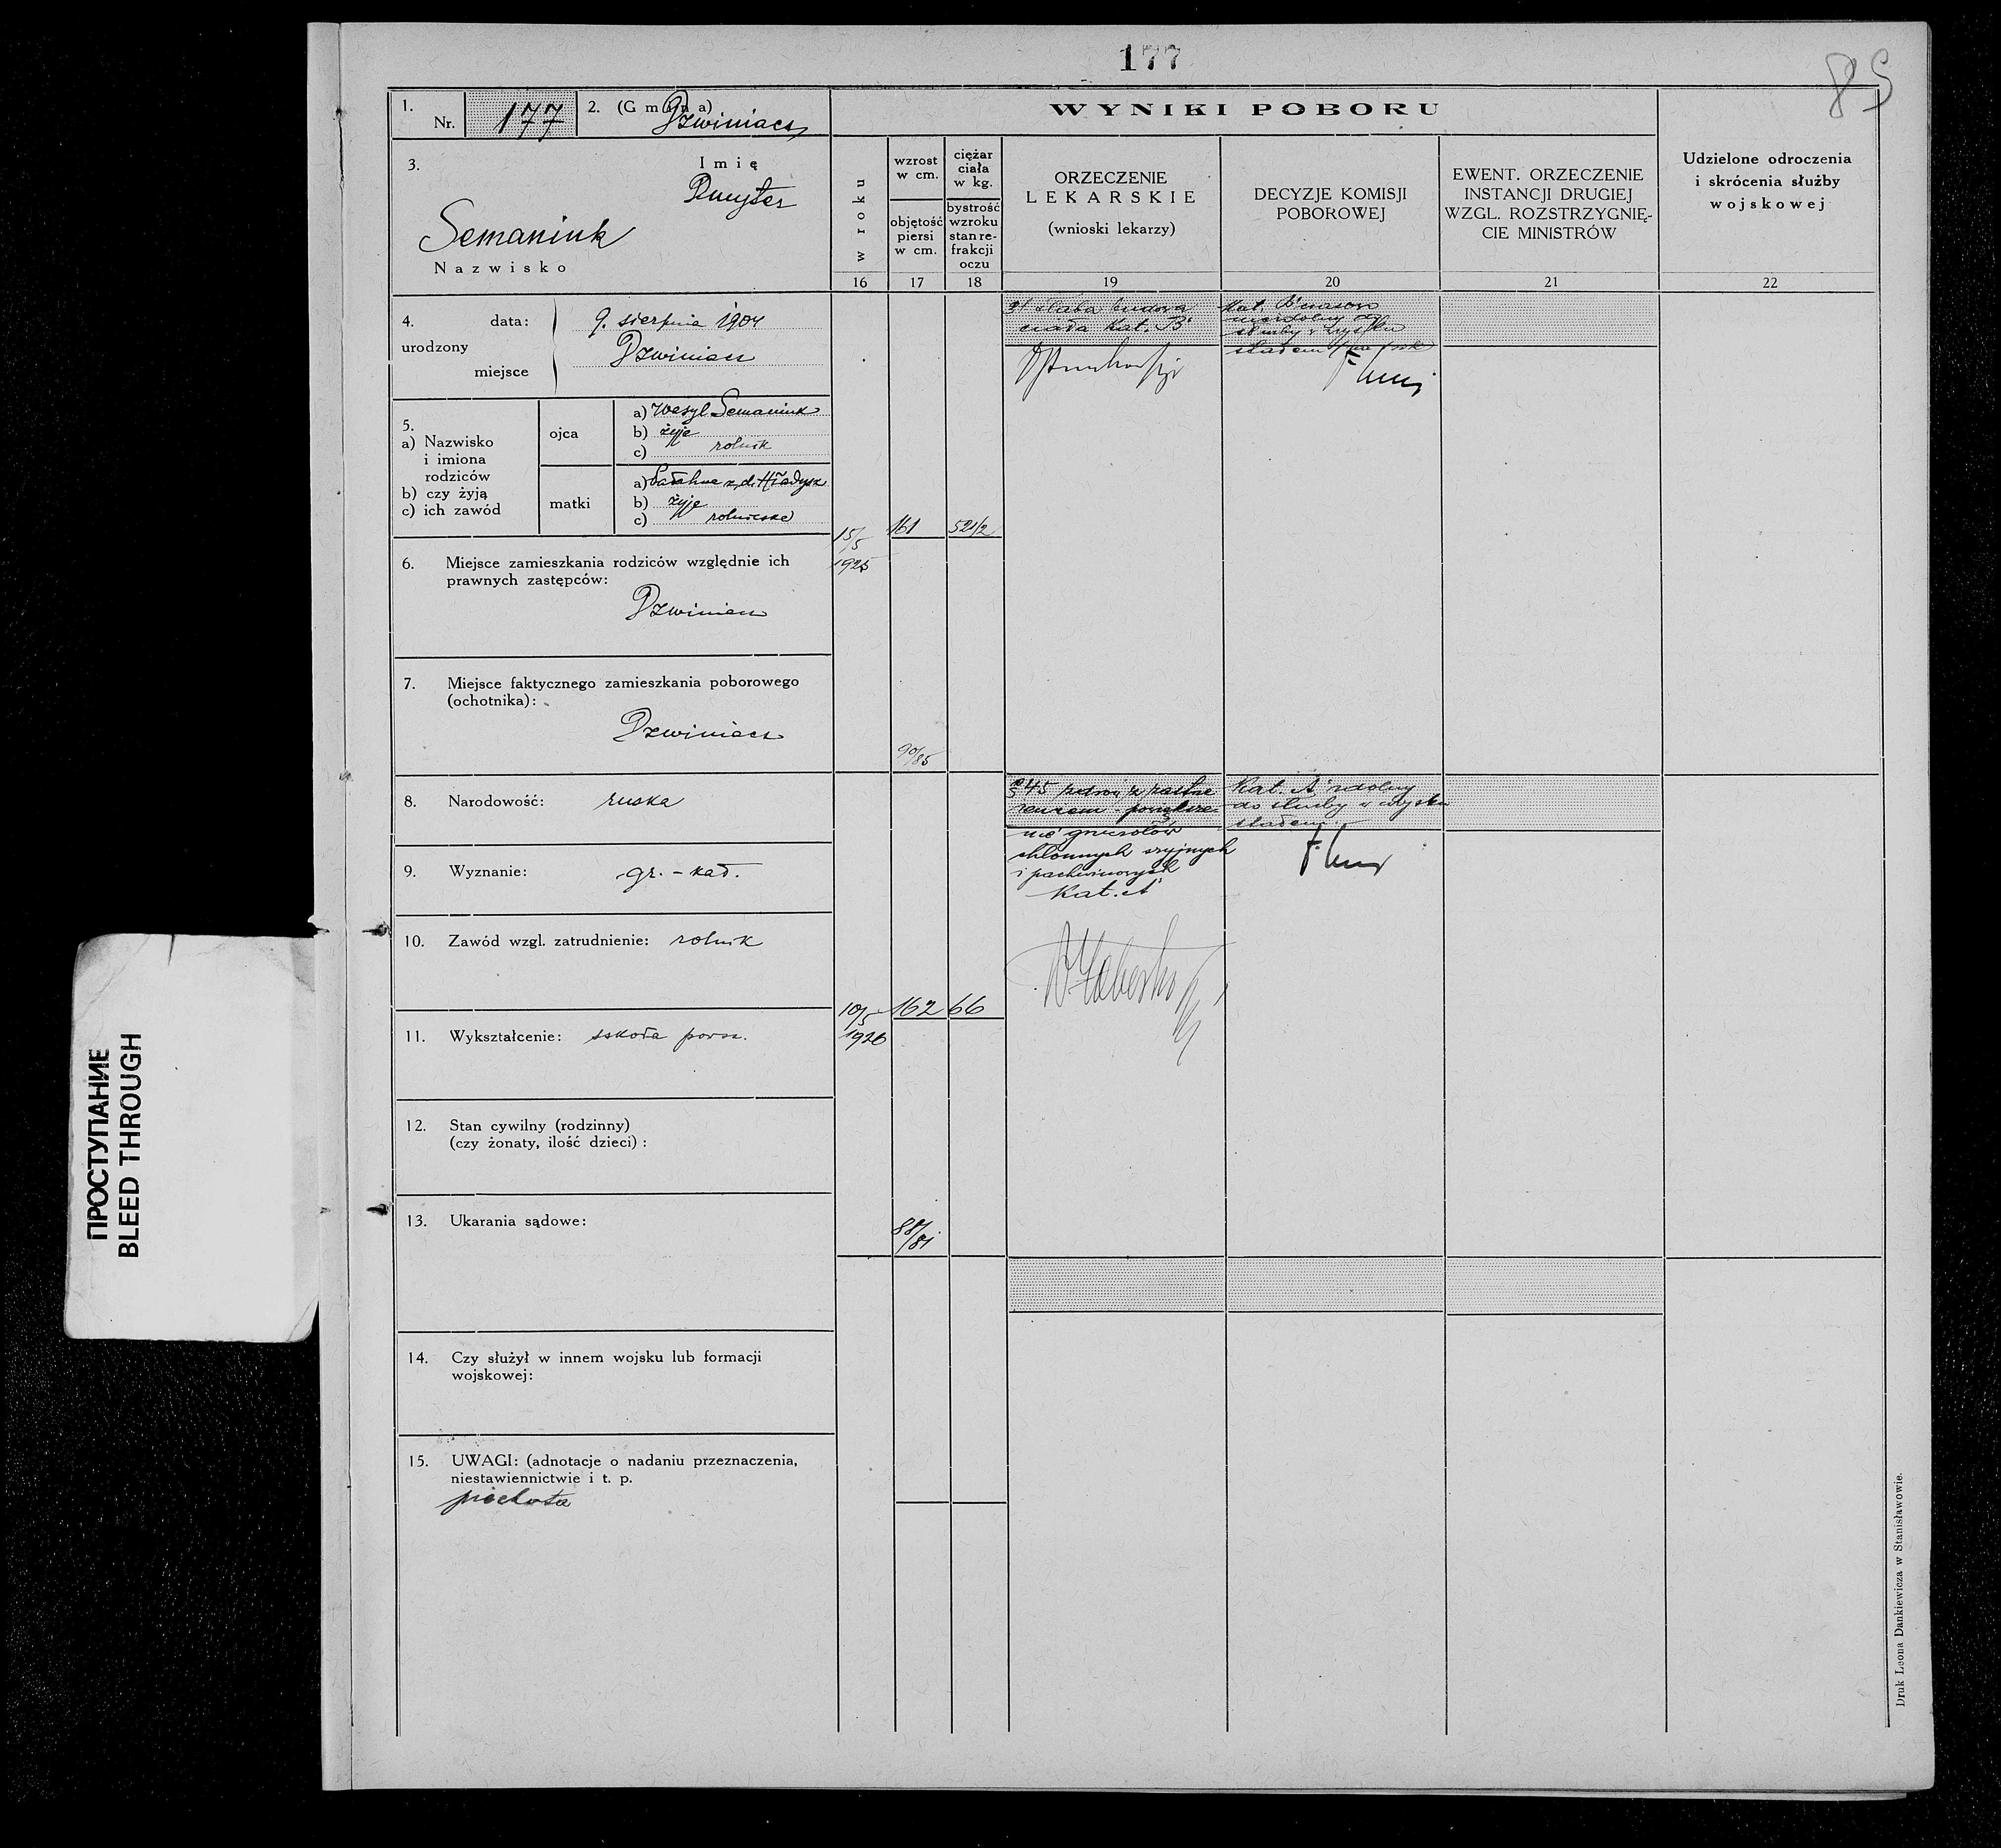 177
85
1.
Nr. 177
2. (Gmina)
Dzwiniacz
3.
Imię
Dmyter
Semaniuk
Nazwisko
WYNIKI POBORU
w roku
wzrost
w cm.
objętość
piersi
w cm.
ciężar
ciała
w kg.
bystrość
wzroku
stan re-
frakcji
oczu
ORZECZENIE
LEKARSKIE
(wnioski lekarzy)
DECYZJE KOMISJI
POBOROWEJ
EWENT. ORZECZENIE
INSTANCJI DRUGIEJ
WZGL. ROZSTRZYGNIĘ-
CIE MINISTRÓW
Udzielone odroczenia
i skrócenia służby
wojskowej
16 17 18 19 20 21 22
4.
urodzony
data: 9. sierpnia 1904
miejsce Dzwiniacz
5.
a) Nazwisko
i imiona
rodziców
b) czy żyją
c) ich zawód
ojca
a) Wasyl Semaniuk
b) żyje
c) rolnik
matki
a) z d. Hładysz
b) żyje
c)
6. Miejsce zamieszkania rodziców względnie ich
prawnych zastępców:
Dzwiniacz
7. Miejsce faktycznego zamieszkania poborowego
(ochotnika):
Dzwiniacz
8. Narodowość: ruska
9. Wyznanie: gr.-kat.
10. Zawód wzgl. zatrudnienie: rolnik
11. Wykształcenie: szkoła powsz.
12. Stan cywilny (rodzinny)
(czy żonaty, ilość dzieci):
13. Ukarania sądowe:
14. Czy służył w innem wojsku lub formacji
wojskowej:
15. UWAGI: (adnotacje o nadaniu przeznaczenia,
niestawiennictwie i t. p.
piechota
15/5
1925
161
52 1/2
90/85
słaba budowa
ciała Kat. B
Kat. B czasowo
niezdolny do
służby w wojsku
stałem
10/5
1926
162
66
88/81
§ 45
powiększe-
nie gruczołów
chłonnych szyjnych
i pachwinowych
Kat. A
Kat. A zdolny
do służby w wojsku
stałem
Druk Leona Dankiewicza w Stanisławowie.
ПРОСТУПАНИЕ
BLEED THROUGH